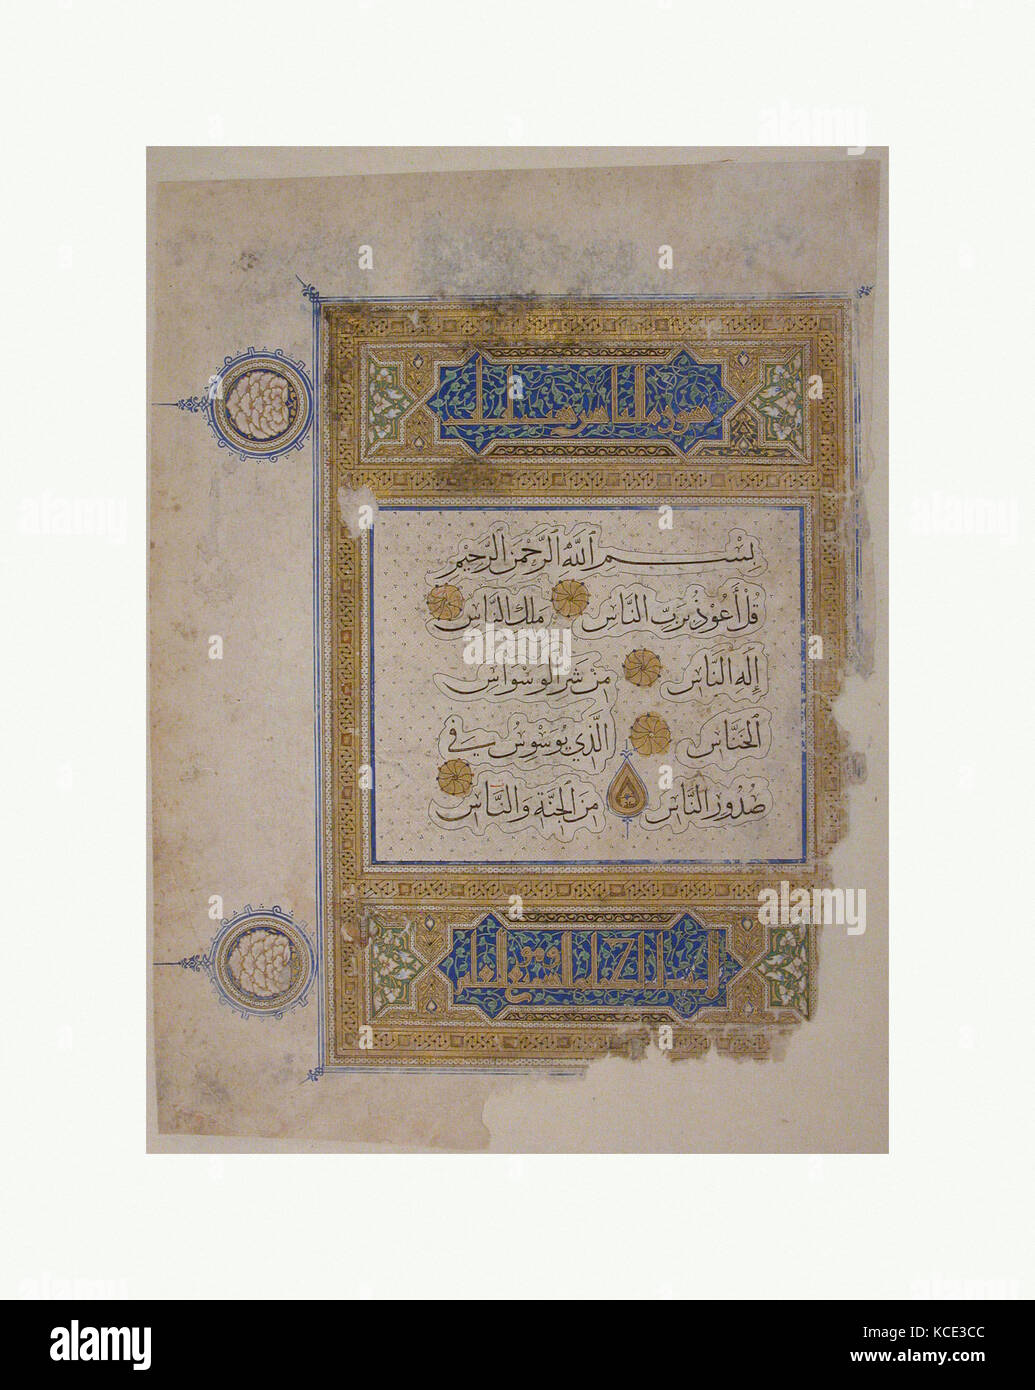 بِسْمِ ٱللَّهِ ٱلرَّحْمَنِ ٱلرَّحِيمِ
قُلْ أَعُوذُ بِرَبِّ النَّاسِ مَلِكِ النَّاسِ
إِلَهِ النَّاسِ مِنْ شَرِّ الْوَسْوَاسِ
الْخَنَّاسِ الَّذِي يُوَسْوِسُ فِي
صُدُورِ النَّاسِ مِنَ الْجِنَّةِ وَالنَّاسِ
alamy
Image ID: KCE3CC
www.alamy.com